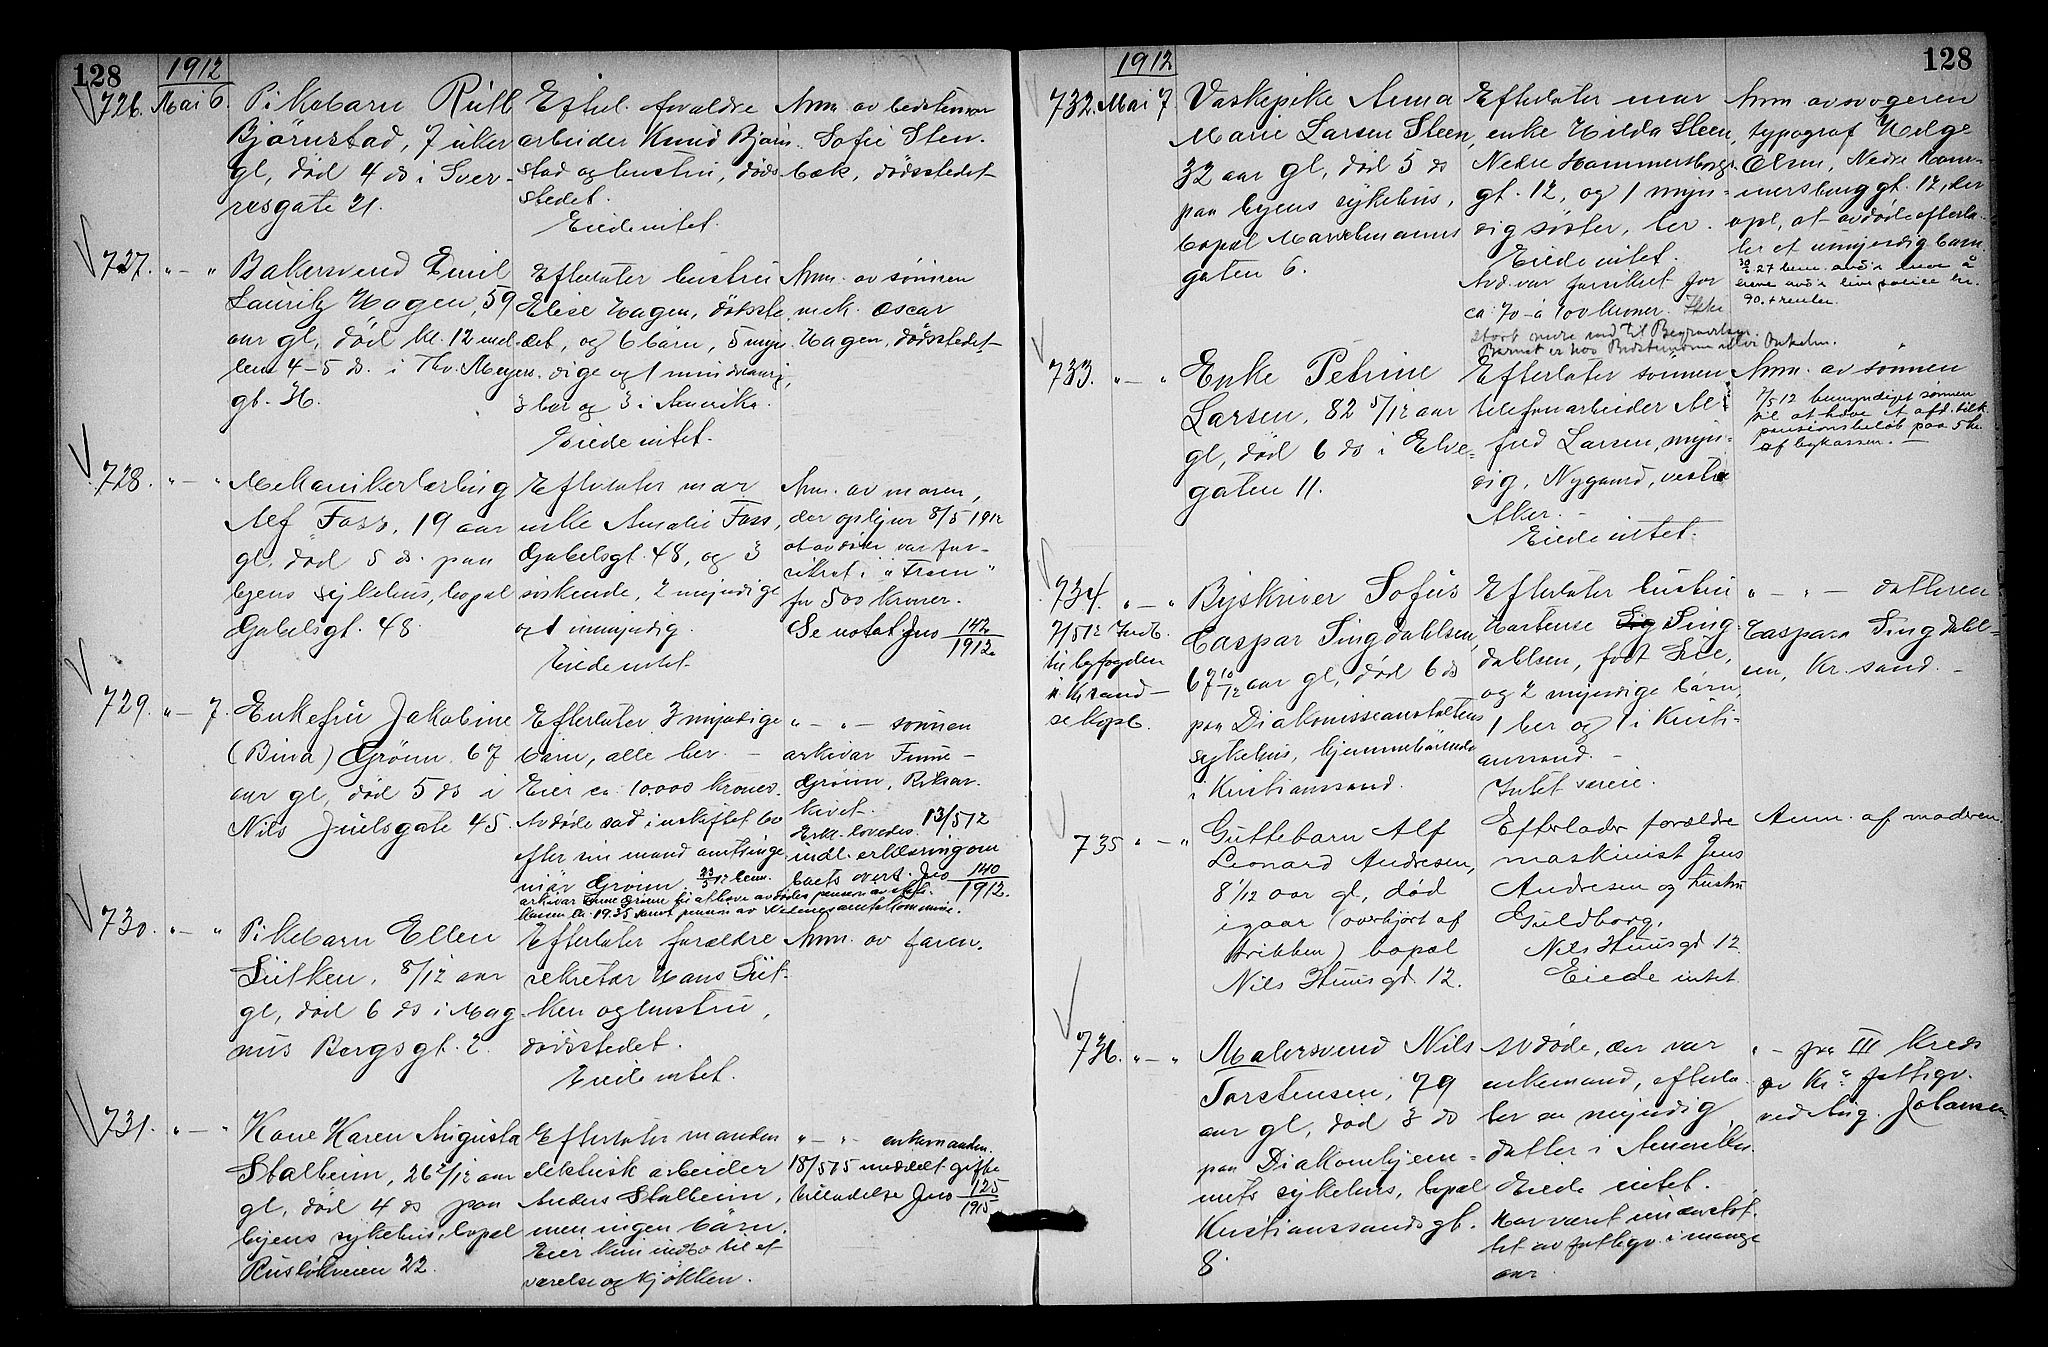 128
1912
726. Mai 6.
Pikebarn Ruth
Bjørnstad, 7 uker
gl, død 4 ds i Sver-
resgate 21.
Efterl. forældre
arbeider Knud Bjørn-
stad og hustru, døds-
stedet.
Eiede intet.
Anm. av bedstemor
Sofie Sten-
bæk, dødsstedet
727. " — "
Bakersvend Emil
Lauritz Hagen, 59
aar gl, død kl. 12 mel-
lem 4-5 ds. i Thv. Meyers
gt. 36.
Efterlater hustru
Elise Hagen, dødsste
det, og 6 barn, 5 myn
dige og 1 mindreaarig,
3 her og 3 i Amerika.
Eiede intet.
Anm. av sønnen
mek. Oscar
Hagen, dødsstedet
728. " — "
Mekanikerlærling
Alf Foss, 19 aar
gl, død 5 ds. paa
byens sykehus, bopæl
Gabelsgt. 48.
Efterlater mor
enke Amalie Foss,
Gabelsgt. 48, og 3
søskende, 2 myndige
og 1 umyndig.
Eiede intet.
Anm. av moren,
der oplyser 8/5 1912
at avdøde var for-
sikret i "Fram"
for 500 kroner.
Se notat Jno 142/1912.
729. " — 7.
Enkefru Jakobine
(Bina) Grönn, 67
aar gl, død 5 ds i
Nils Juelsgate 45.
Efterlater 3 myndige
barn, alle her. —
Eier ca. 10.000 kroner.
Avdøde sad i uskiftet bo
efter sin mand amtsinge
niør Grönn. 23/5 12 bem.
arkivar Grönn til at hæve avdødes pension av
kassen kr. 19.35 samt pension av amtskommune.
" — " — sønnen
arkivar
Grönn, Riksar-
kivet.
Erkl. lovedes. 13/5 12
indl. erklæring om
boets overt. Jno 140/1912.
730. " — "
Pikebarn Ellen
Lütken, 8/12 aar
gl, død 6 ds i Mag-
nus Bergsgt. 2.
Efterlater forældre
sekretær Hans Lüt-
ken og hustru,
dødsstedet.
Eiede intet.
Anm. av faren.
731. " — "
Kone Karen Augusta
Stalheim, 26 2/12 aar
gl, død 4 ds paa
byens sykehus, bopæl
Ruseløkveien 22.
Efterlater manden
elektrisk arbeider
Anders Stalheim,
men ingen barn.
Eier kun indbo til et
værelse og kjøkken.
" — " enkemanden.
18/5 15 meddelt gifte
tilladelse Jno 125/1915
128
1912
732. Mai 7
Vaskepike Anna
Marie Larsen Steen,
32 aar gl, død 5 ds
paa byens sykehus,
bopæl
gaten 6.
Efterlater mor
enke Hilda Steen,
Nedre Hammersborg-
gt. 12, og 1 myn-
dig søster, her.
Eiede intet.
Avd. var forsikret for
ca 70 à 100 kroner. Ikke
stort mere end til Begravelsen.
Barnet er hos Bedstemoren Onkelen.
Anm. av svogeren
typograf Helge
Olsen, Nedre Ham-
mersborggt. 12, der
opl, at avdøde efterla-
ter et umyndig barn.
90. + renter.
733. " — "
Enke Petrine
Larsen, 82 5/12 aar
gl, død 6 ds i Elve-
gaten 11.
Efterlater sønnen
telefonarbeider Al-
fred Larsen, myn-
dig, Nygaard, vestre
Aker. —
Eiede intet.
Anm. av sønnen
7/5 12 bemyndiget sønnen
til at hæve et afd. tilk.
pensionsbeløb paa 5 kr.
af bykassen. —
734. " — "
7/5 12 Indb.
til byfogden
i Kr.sand —
se kopb.
Byskriver Sofus
Caspar Singdahlsen,
67 10/12 aar gl, død 6 ds
paa Diakonisseanstaltens
sykehus, hjemmehørende
i Kristianssand.
Efterlater hustru
Hortense Sing-
dahlsen, født Lie,
og 2 myndige barn,
1 her og 1 i Kristi-
anssand. —
Intet særeie.
" — " — datteren
Caspara Singdahl-
sen, Kr.sand. —
735 " — "
Guttebarn Alf
Leonard Andresen,
8/12 aar gl, død
igaar (overkjørt af
trikken) bopæl
Nils Huusgd 12.
Efterlader forældre
maskinist Jens
Andresen og hustru
Guldborg,
Nils Huusgd 12.
Eiede intet
Anm. af moderen.
736. " — "
Malersvend Nils
Torstensen, 79
aar gl, død 3 ds
paa Diakonhjem-
mets sykehus, bopæl
Kristianssandsgt.
8.
Avdøde, der var
enkemand, efterla-
ter en myndig
datter i Amerika.
Eiede intet.
Har været understøt-
tet av fattigv. i mange
aar.
" — fra III Kreds
av Kr.a fattigv.
ved Aug. Johansen